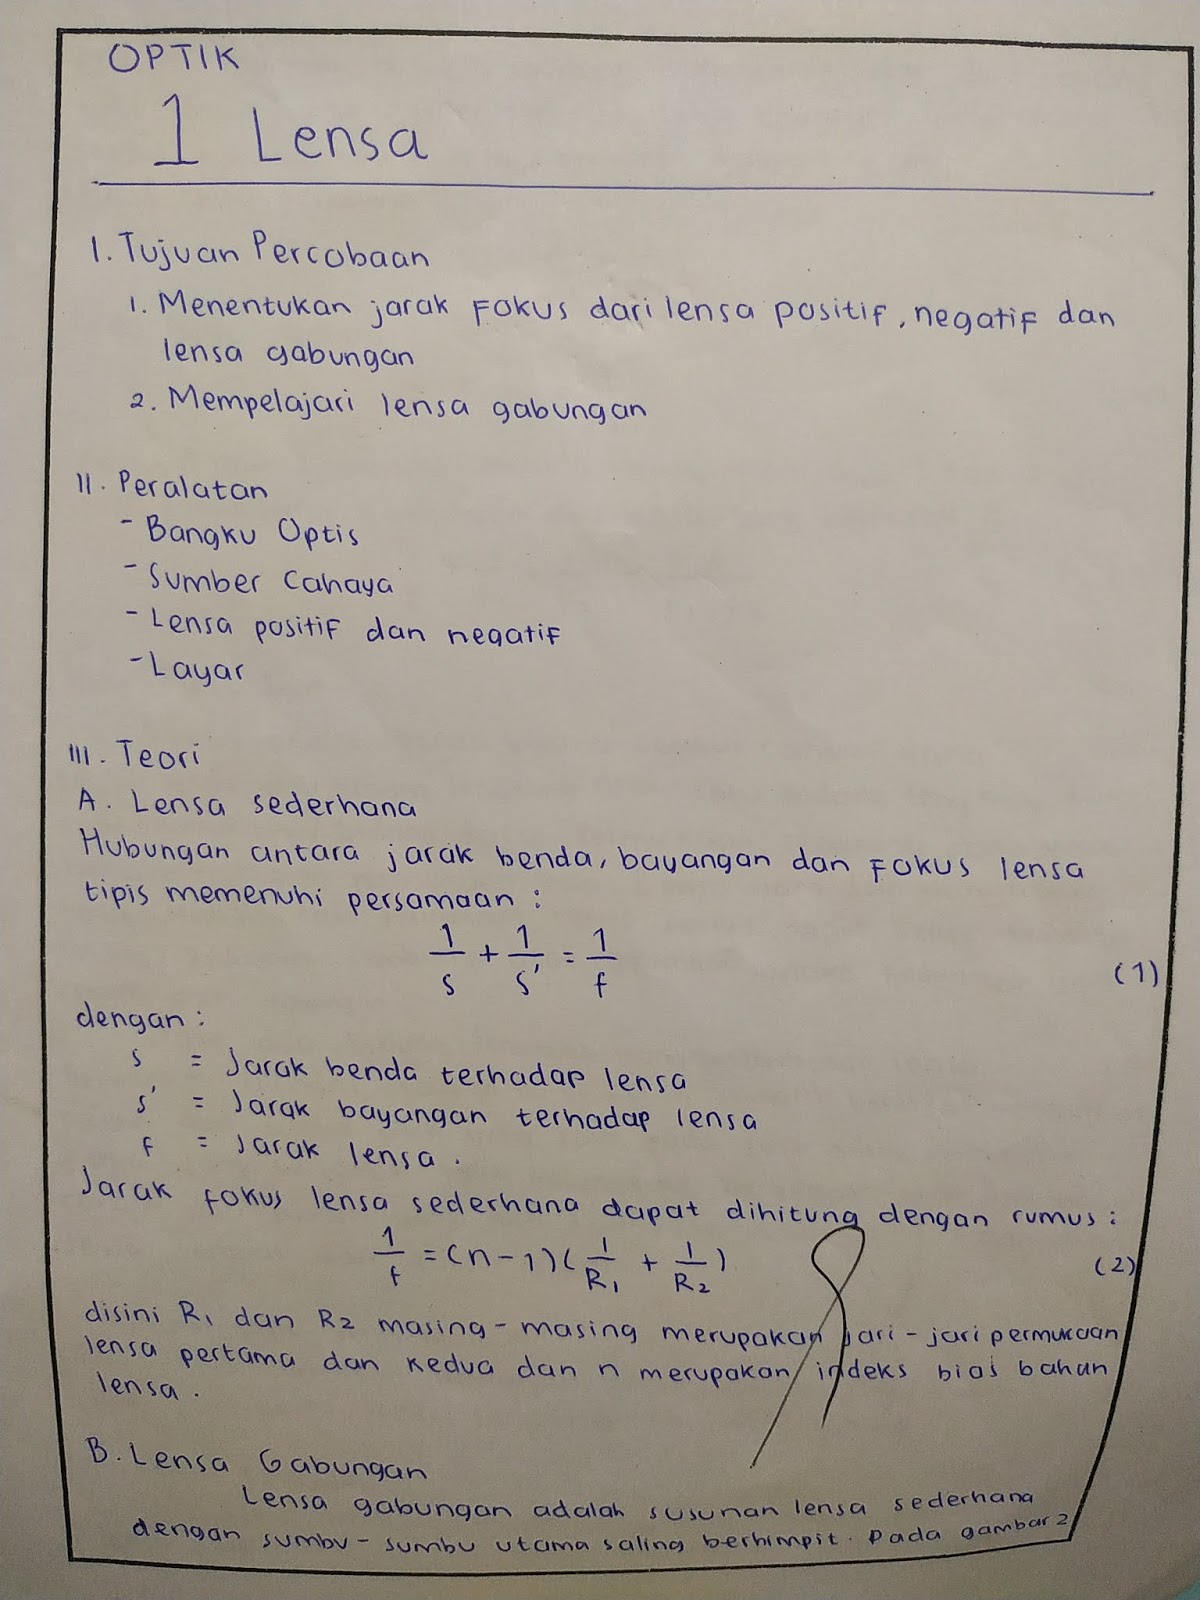 OPTIK
1 Lensa
I. Tujuan Percobaan
1. Menentukan jarak fokus dari lensa positif, negatif dan
lensa gabungan
2. Mempelajari lensa gabungan
II. Peralatan
- Bangku Optis
- Sumber Cahaya
- Lensa positif dan negatif
- Layar
III. Teori
A. Lensa sederhana
Hubungan antara jarak benda, bayangan dan fokus lensa
tipis memenuhi persamaan :
1/s + 1/s' = 1/f (1)
dengan :
s = Jarak benda terhadap lensa
s' = Jarak bayangan terhadap lensa
f = Jarak lensa .
Jarak fokus lensa sederhana dapat dihitung dengan rumus :
1/f = (n-1)(1/R1 + 1/R2) (2)
disini R1 dan R2 masing-masing merupakan jari-jari permukaan
lensa pertama dan kedua dan n merupakan indeks bias bahan
lensa .
B. Lensa Gabungan
Lensa gabungan adalah susunan lensa sederhana
dengan sumbu-sumbu utama saling berhimpit. Pada gambar 2